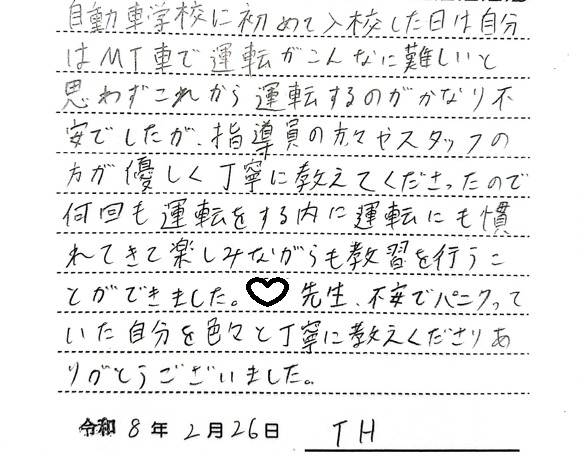 自動車学校に初めて入校した日は自分
はMT車で運転がこんなに難しいと
思わずこれから運転するのがかなり不
安でしたが、指導員の方々やスタッフの
方が優しく丁寧に教えてくださったので
何回も運転をする内に運転にも慣
れてきて楽しみながらも教習を行うこ
とができました。♡先生、不安でパニクって
いた自分を色々と丁寧に教えくださりあ
りがとうございました。
令和8年2月26日 TH